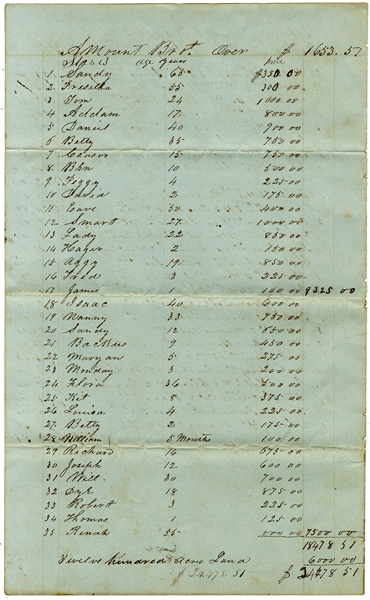 Amount Brot Over $ 1653.51
Names age years price
1 Sandy 65 $350.00
2 Presilla 55 300 00
3 Tom 24 1000 00
4 Addam 17 800 00
5 Daniel 40 900 00
6 Betty 35 750 00
7 15 750 00
8 Ben 10 500 00
9 Peggy 4 225 00
10 2 175 00
11 30 400 00
12 Smart 27 1000 00
13 Lady 22 850 00
14 Hager 2 150 00
15 Aggy 19 850 00
16 Fred 3 225 00
17 James 1 100 00 8325 00
18 Isaac 40 600 00
19 Nanny 33 750 00
20 Sandy 12 650 00
21 Backus 9 450 00
22 Maryan 5 275 00
23 Monday 3 200 00
24 Flora 36 500 00
25 Kit 8 375 00
26 Louisa 4 225 00
27 Betty 2 175 00
28 William 5 Months 100 00
29 Rachard 14 675 00
30 Joseph 12 600 00
31 Will 30 700 00
32 Dyk 18 875 00
33 Robert 3 225 00
34 Thomas 1 125 00
35 Renah 25 000 00 7500 00
18478 51
Twelve hundred Acres Land 6000 00
$ 24478.51 $ 24478 51